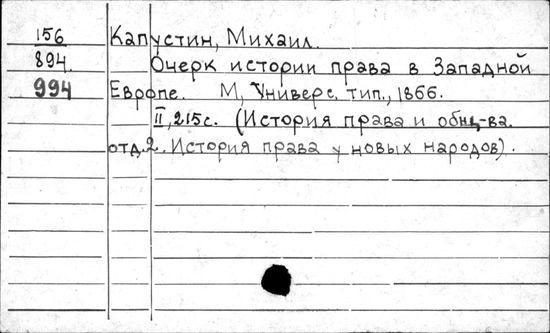 156 Капустин, Михаил.
894. Очерк истории права в Западной
994 Европе. М, Универс. тип., 1866.
II, 215 с. (История права и общ-ва.
отд.2. История права у новых народов).